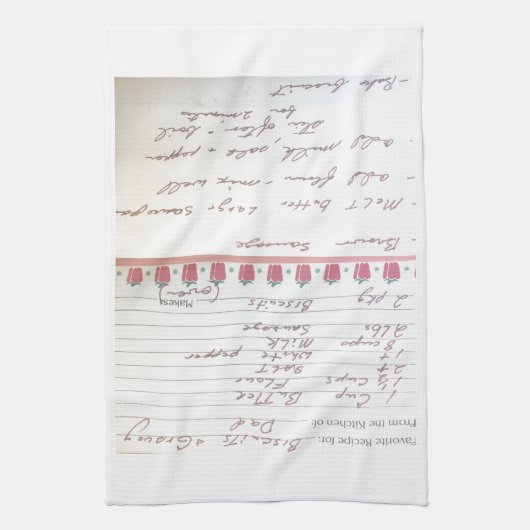 Favorite Recipe for: Biscuits & Gravy
From the Kitchen of: Dad
1 Cup Butter
1 1/2 Cups Flour
2 t Salt
1 t White pepper
8 cups Milk
2 lbs Sausage
2 pkg Biscuits
Makes:
(over)
- Brown Sausage
- Melt butter Large Saucepan
- add flour - mix well
- add milk, salt + pepper
stir often - boil
for 2 minutes
- Bake biscuit